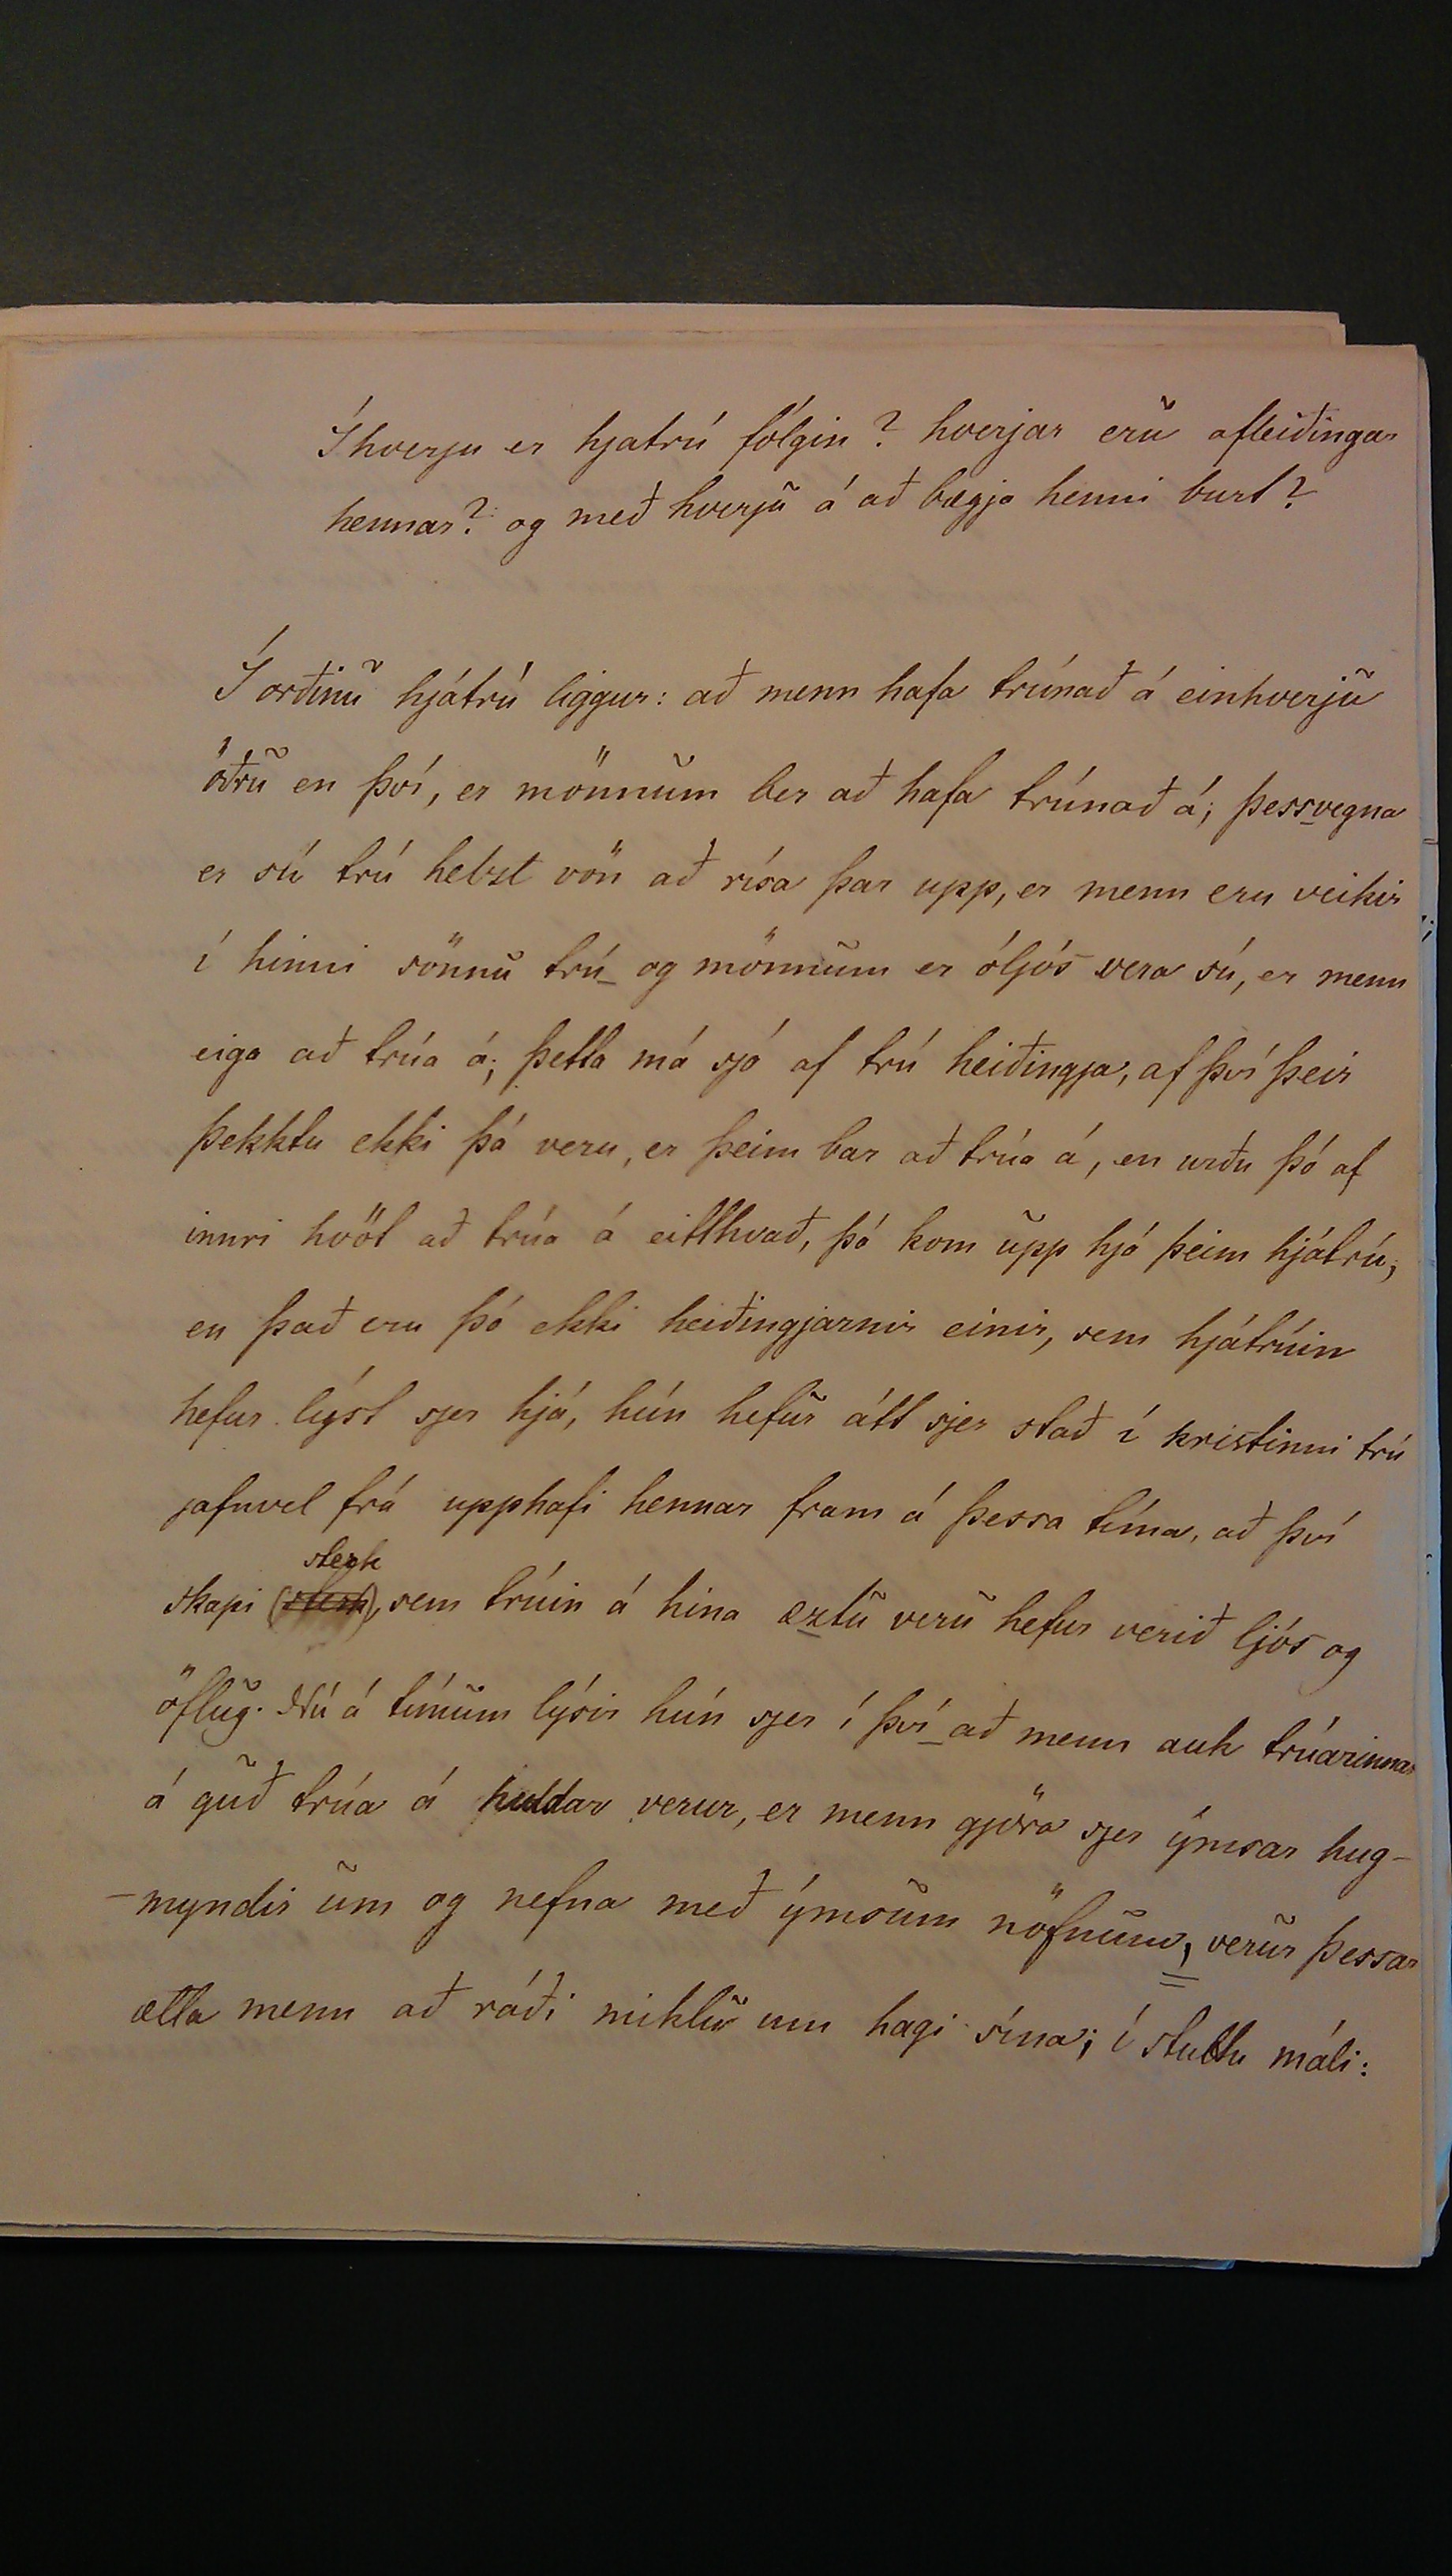 Í hverju er hjatrú fólgin? hverjar eru afleiðingar
hennar? og með hverju á að bægja henni burt?
Í orðinu hjátrú liggur: að menn hafa trúnað á einhverju
öðru en því, er mönnum ber að hafa trúnað á; þessvegna
er sú trú helzt vön að rísa þar upp, er menn eru veikir
í hinni sönnu trú og mönnum er óljós vera sú, er menn
eiga að trúa á; þetta má sjá af trú heiðingja, af því þeir
þekktu ekki þá veru, er þeim bar að trúa á, en urðu þó af
innri hvöt að trúa á eitthvað, þá kom upp hjá þeim hjátrú;
en það eru þó ekki heiðingjarnir einir, sem hjátrúin
hefur lýst sjer hjá, hún hefur átt sjer stað í kristinni trú
jafnvel frá upphafi hennar fram á þessa tíma, að því
sterk
skapi (sterk), sem trúin á hina æztu veru hefur verið ljós og
öflug. Nú á tímum lýsir hún sjer í því að menn auk trúarinnar
á guð trúa á huldar verur, er menn gjöra sjer ýmsar hug-
-myndir um og nefna með ýmsum nöfnum, verur þessar
ætla menn að ráði miklu um hagi sína; í stuttu máli: